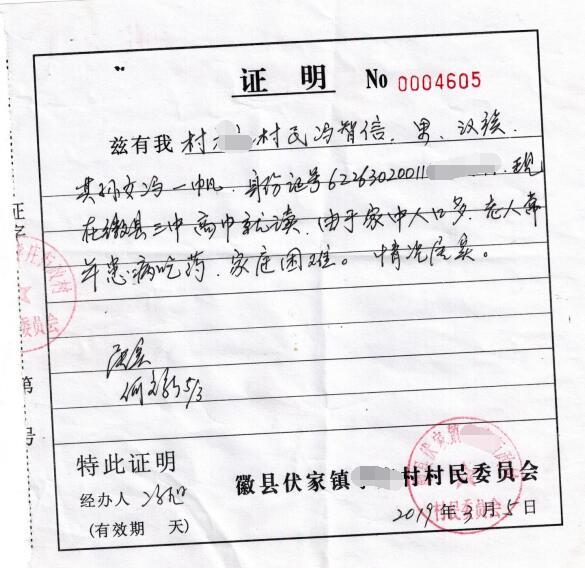 证 明 No 0004605
兹有我 村 村民冯智信，男，汉族，
其孙女冯一帆，身份证号62263020011 ，现
在徽县三中高中就读，由于家中人口多，老人常
年患病吃药，家庭困难。情况属实。
属实
5/3
特此证明
徽县伏家镇 村村民委员会
经办人
(有效期 天)
2019年3月5日
证字
第
号
村
委员会
徽县伏家镇
村民委员会